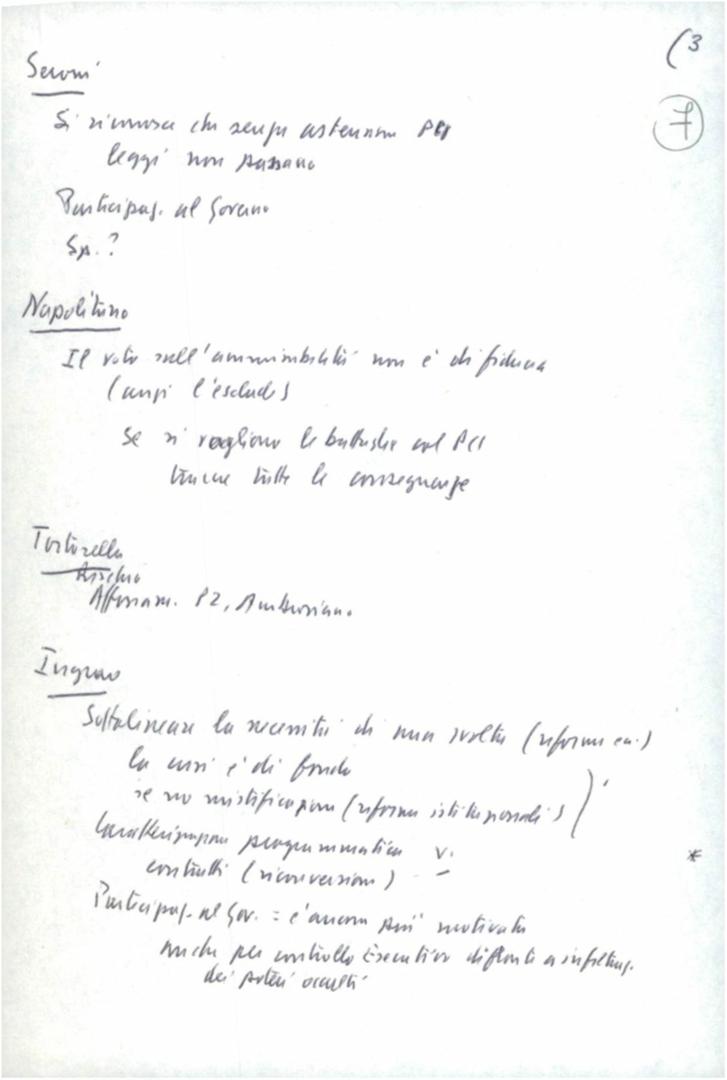 (3
7
Seroni
Si riconosce che senza astensione PCI
leggi non passano
Partecipaz. al Governo
Sp.?
Napolitano
Il voto sull'ammissibilità non è di fiducia
(anzi l'esclude)
Se si vogliono le battaglie col PCI
tutte le conseguenze
Tortorella
Rischio
P2, Ambrosiano
Ingrao
Sottolineare la necessità di una svolta (riforme ec.)
la crisi è di fondo
se no mistificazione (riforme istituzionali)
Caratterizzazione programmatica V.
contratti (riconversione)
*
Partecipaz. al Gov. = è ancora più motivata
anche per controllo Esecutivo di fronte a infiltraz.
dei poteri occulti